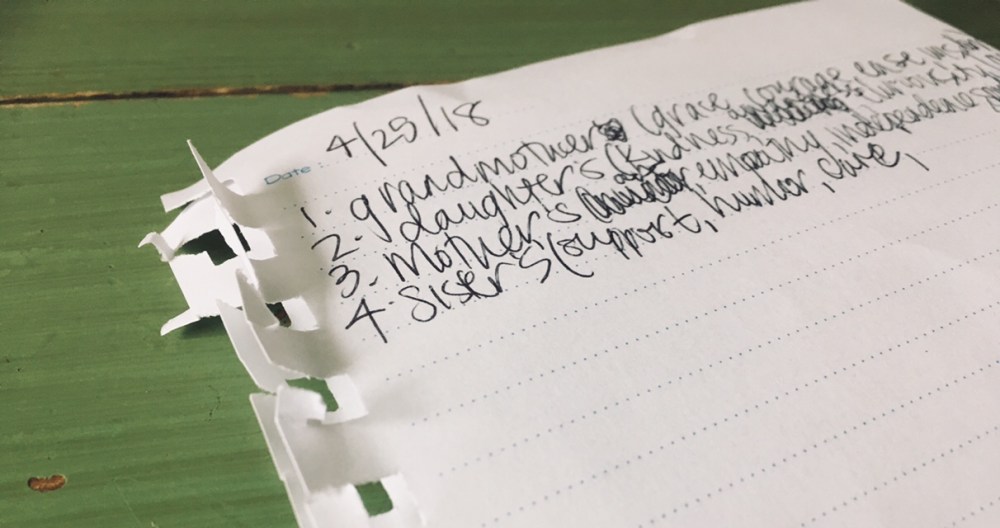 Date: 4/25/18
1. grandmothers (grace, courage, ease
2. daughters (kindness, curiosity
3. Mothers empathy, independence
4. Sisters (support, humor,